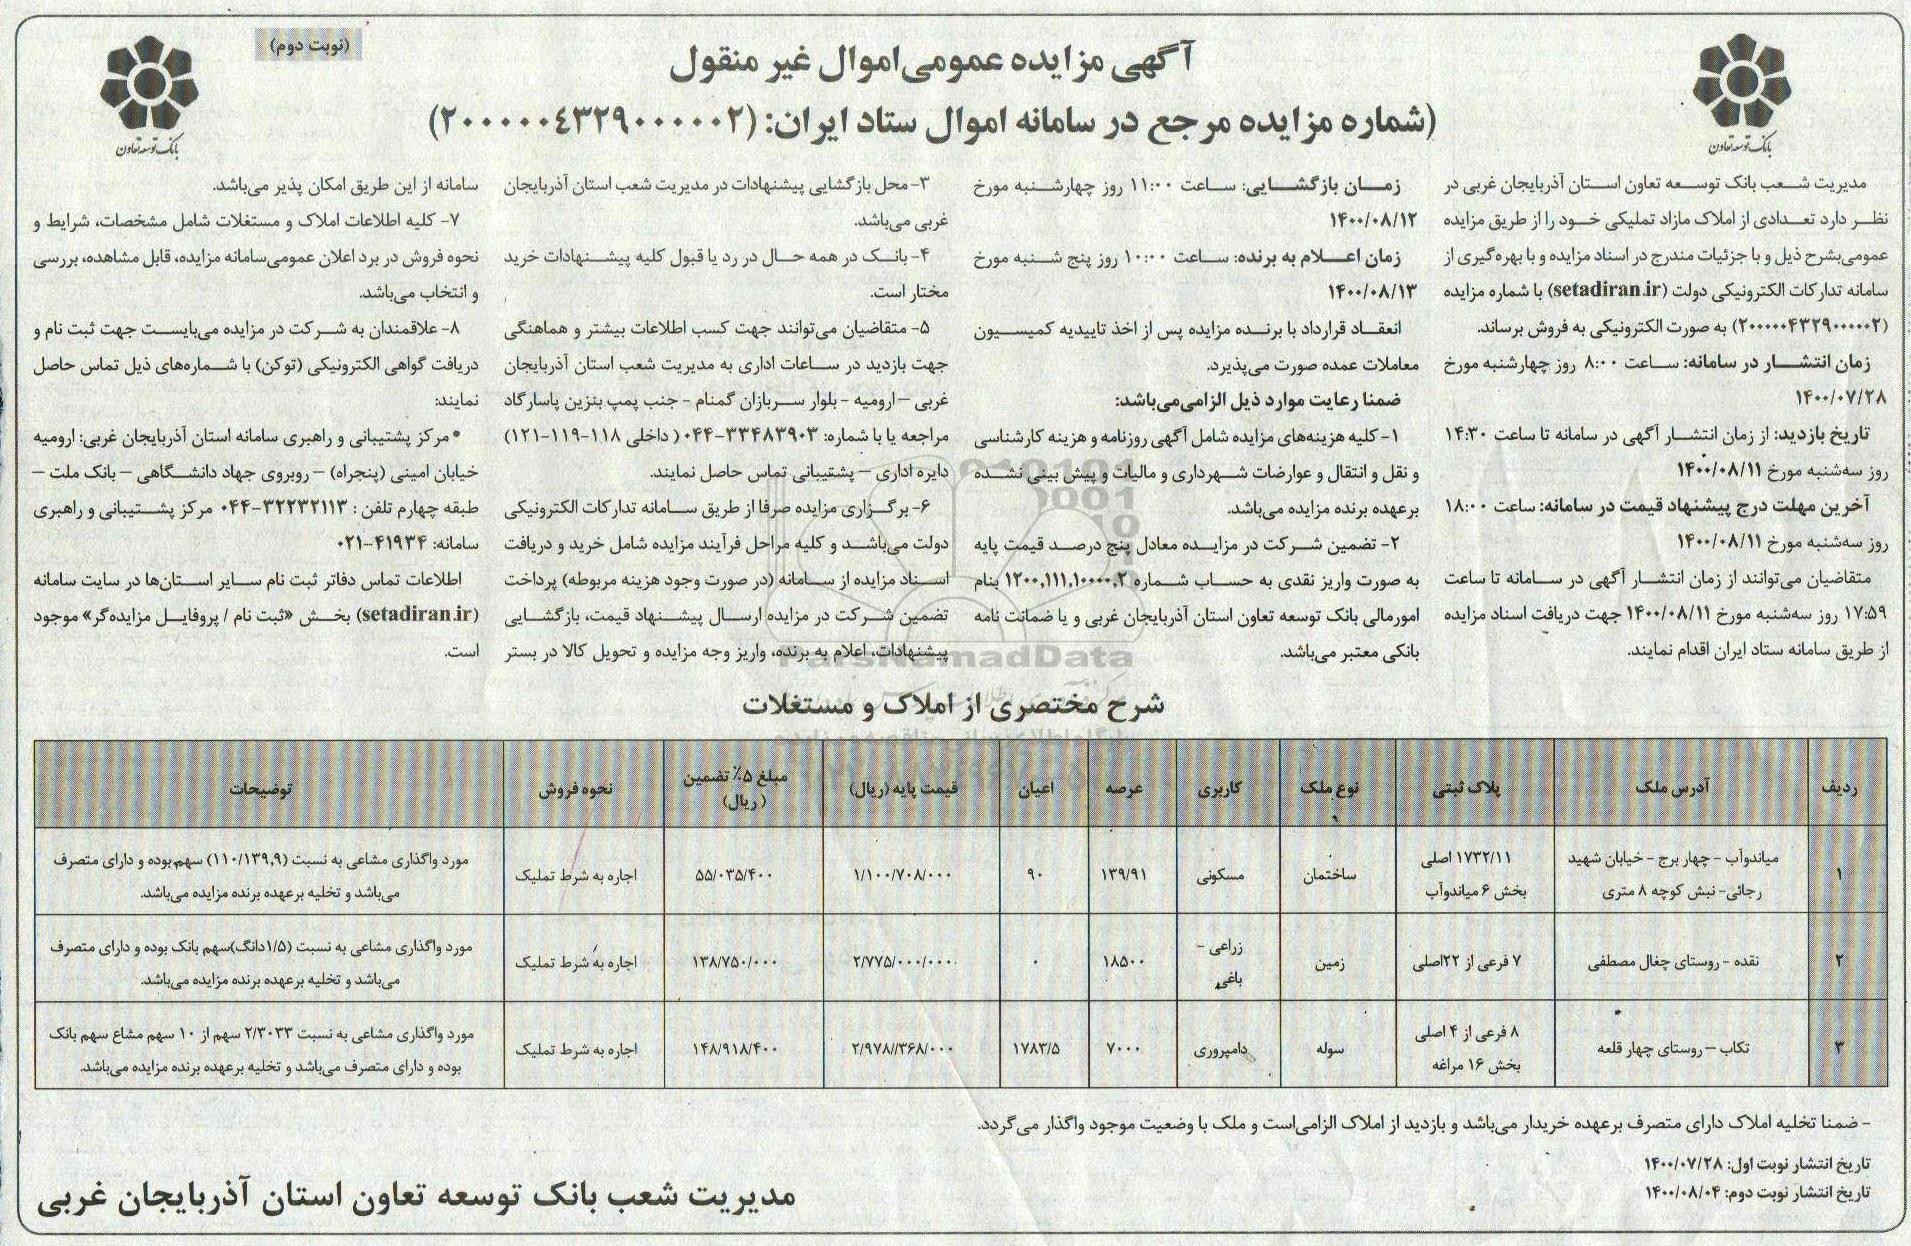 (نوبت دوم)
آگهی مزایده عمومی اموال غیر منقول
(شماره مزایده مرجع در سامانه اموال ستاد ایران: (۲۰۰۰۰۰۴۳۲۹۰۰۰۰۰۲)
بانک توسعه تعاون
بانک توسعه تعاون
مدیریت شعب بانک توسعه تعاون استان آذربایجان غربی در
نظر دارد تعدادی از املاک مازاد تملیکی خود را از طریق مزایده
عمومی بشرح ذیل و با جزئیات مندرج در اسناد مزایده و با بهره گیری از
سامانه تدارکات الکترونیکی دولت (setadiran.ir) با شماره مزایده
(۲۰۰۰۰۰۴۳۲۹۰۰۰۰۰۲) به صورت الکترونیکی به فروش برساند.
زمان انتشار در سامانه: ساعت ۸:۰۰ روز چهارشنبه مورخ
۱۴۰۰/۰۷/۲۸
تاریخ بازدید: از زمان انتشار آگهی در سامانه تا ساعت ۱۴:۳۰
روز سه‌شنبه مورخ ۱۴۰۰/۰۸/۱۱
آخرین مهلت درج پیشنهاد قیمت در سامانه: ساعت ۱۸:۰۰
روز سه‌شنبه مورخ ۱۴۰۰/۰۸/۱۱
متقاضیان می‌توانند از زمان انتشار آگهی در سامانه تا ساعت
۱۷:۵۹ روز سه‌شنبه مورخ ۱۴۰۰/۰۸/۱۱ جهت دریافت اسناد مزایده
از طریق سامانه ستاد ایران اقدام نمایند.
زمان بازگشایی: ساعت ۱۱:۰۰ روز چهارشنبه مورخ
۱۴۰۰/۰۸/۱۲
زمان اعلام به برنده: ساعت ۱۰:۰۰ روز پنج شنبه مورخ
۱۴۰۰/۰۸/۱۳
انعقاد قرارداد با برنده مزایده پس از اخذ تاییدیه کمیسیون
معاملات عمده صورت می‌پذیرد.
ضمنا رعایت موارد ذیل الزامی می‌باشد:
۱- کلیه هزینه‌های مزایده شامل آگهی روزنامه و هزینه کارشناسی
و نقل و انتقال و عوارضات شهرداری و مالیات و پیش بینی نشده
برعهده برنده مزایده می‌باشد.
۲- تضمین شرکت در مزایده معادل پنج درصد قیمت پایه
به صورت واریز نقدی به حساب شماره ۱۲۰۰,۱۱۱,۱۰۰۰۰,۲ بنام
امورمالی بانک توسعه تعاون استان آذربایجان غربی و یا ضمانت نامه
بانکی معتبر می‌باشد.
۳- محل بازگشایی پیشنهادات در مدیریت شعب استان آذربایجان
غربی می‌باشد.
۴- بانک در همه حال در رد یا قبول کلیه پیشنهادات خرید
مختار است.
۵- متقاضیان می‌توانند جهت کسب اطلاعات بیشتر و هماهنگی
جهت بازدید در ساعات اداری به مدیریت شعب استان آذربایجان
غربی – ارومیه - بلوار سربازان گمنام - جنب پمپ بنزین پاسارگاد
مراجعه یا با شماره: ۳۳۴۸۳۹۰۳-۰۴۴ ( داخلی ۱۱۸-۱۱۹-۱۲۱)
دایره اداری – پشتیبانی تماس حاصل نمایند.
۶- برگزاری مزایده صرفا از طریق سامانه تدارکات الکترونیکی
دولت می‌باشد و کلیه مراحل فرآیند مزایده شامل خرید و دریافت
اسناد مزایده از سامانه (در صورت وجود هزینه مربوطه) پرداخت
تضمین شرکت در مزایده ارسال پیشنهاد قیمت، بازگشایی
پیشنهادات، اعلام به برنده، واریز وجه مزایده و تحویل کالا در بستر
سامانه از این طریق امکان پذیر می‌باشد.
۷- کلیه اطلاعات املاک و مستغلات شامل مشخصات، شرایط و
نحوه فروش در برد اعلان عمومی سامانه مزایده، قابل مشاهده، بررسی
و انتخاب می‌باشد.
۸- علاقمندان به شرکت در مزایده می‌بایست جهت ثبت نام و
دریافت گواهی الکترونیکی (توکن) با شماره‌های ذیل تماس حاصل
نمایند:
• مرکز پشتیبانی و راهبری سامانه استان آذربایجان غربی: ارومیه
خیابان امینی (پنجراه) – روبروی جهاد دانشگاهی – بانک ملت –
طبقه چهارم تلفن : ۳۲۲۳۲۱۱۳-۰۴۴ مرکز پشتیبانی و راهبری
سامانه: ۴۱۹۳۴-۰۲۱
اطلاعات تماس دفاتر ثبت نام سایر استان‌ها در سایت سامانه
(setadiran.ir) بخش «ثبت نام / پروفایل مزایده‌گر» موجود
است.
ParsNamadData
شرح مختصری از املاک و مستغلات
ردیف آدرس ملک پلاک ثبتی نوع ملک کاربری عرصه اعیان قیمت پایه (ریال) مبلغ ۵٪ تضمین (ریال) نحوه فروش توضیحات
۱ میاندوآب - چهار برج - خیابان شهید رجائی- نبش کوچه ۸ متری ۱۷۳۲/۱۱ اصلی بخش ۶ میاندوآب ساختمان مسکونی ۱۳۹/۹۱ ۹۰ ۱/۱۰۰/۷۰۸/۰۰۰ ۵۵/۰۳۵/۴۰۰ اجاره به شرط تملیک مورد واگذاری مشاعی به نسبت (۱۱۰/۱۳۹,۹) سهم بوده و دارای متصرف می‌باشد و تخلیه برعهده برنده مزایده می‌باشد.
۲ نقده - روستای چغال مصطفی ۷ فرعی از ۲۲اصلی زمین زراعی - باغی ۱۸۵۰۰ ۰ ۲/۷۷۵/۰۰۰/۰۰۰ ۱۳۸/۷۵۰/۰۰۰ اجاره به شرط تملیک مورد واگذاری مشاعی به نسبت (۱/۵دانگ)سهم بانک بوده و دارای متصرف می‌باشد و تخلیه برعهده برنده مزایده می‌باشد.
۳ تکاب – روستای چهار قلعه ۸ فرعی از ۴ اصلی بخش ۱۶ مراغه سوله دامپروری ۷۰۰۰ ۱۷۸۳/۵ ۲/۹۷۸//۳۶۸/۰۰۰ ۱۴۸/۹۱۸/۴۰۰ اجاره به شرط تملیک مورد واگذاری مشاعی به نسبت ۲/۳۰۳۳ سهم از ۱۰ سهم مشاع سهم بانک بوده و دارای متصرف می‌باشد و تخلیه برعهده برنده مزایده می‌باشد.
- ضمنا تخلیه املاک دارای متصرف برعهده خریدار می‌باشد و بازدید از املاک الزامی است و ملک با وضعیت موجود واگذار می گردد.
تاریخ انتشار نوبت اول: ۱۴۰۰/۰۷/۲۸
تاریخ انتشار نوبت دوم: ۱۴۰۰/۰۸/۰۴
مدیریت شعب بانک توسعه تعاون استان آذربایجان غربی